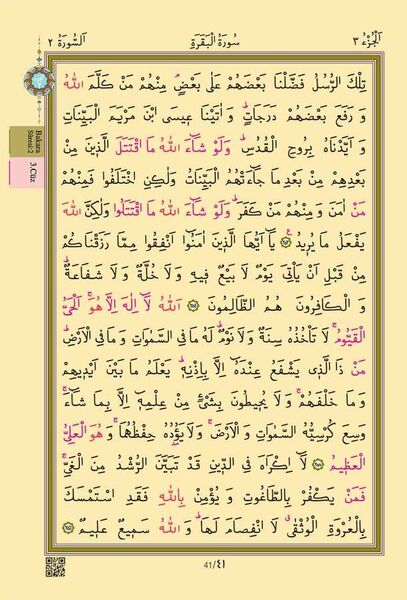 اَلْجُزْءُ ٣
سُورَةُ الْبَقَرَةِ
اَلسُّورَةُ ٢
تِلْكَ الرُّسُلُ فَضَّلْنَا بَعْضَهُمْ عَلٰى بَعْضٍۢ مِنْهُمْ مَنْ كَلَّمَ اللّٰهُ
وَ رَفَعَ بَعْضَهُمْ دَرَجَاتٍۜ وَ اٰتَيْنَا ع۪يسَى ابْنَ مَرْيَمَ الْبَيِّنَاتِ
وَ اَيَّدْنَاهُ بِرُوحِ الْقُدُسِۜ وَلَوْ شَٓاءَ اللّٰهُ مَا اقْتَتَلَ الَّذ۪ينَ مِنْ
بَعْدِهِمْ مِنْ بَعْدِ مَا جَٓاءَتْهُمُ الْبَيِّنَاتُ وَلٰكِنِ اخْتَلَفُوا فَمِنْهُمْ
مَنْ اٰمَنَ وَ مِنْهُمْ مَنْ كَفَرَۜ وَلَوْ شَٓاءَ اللّٰهُ مَا اقْتَتَلُوا وَلٰكِنَّ اللّٰهَ
يَفْعَلُ مَا يُر۪يدُ ۟ ﴿٢٥٣﴾ يَٓا اَيُّهَا الَّذ۪ينَ اٰمَنُٓوا اَنْفِقُوا مِمَّا رَزَقْنَاكُمْ
مِنْ قَبْلِ اَنْ يَأْتِيَ يَوْمٌ لَا بَيْعٌ ف۪يهِ وَ لَا خُلَّةٌ وَ لَا شَفَاعَةٌۜ
وَ الْكَافِرُونَ هُمُ الظَّالِمُونَ ﴿٢٥٤﴾ اَللّٰهُ لَٓا اِلٰهَ اِلَّا هُوَۚ اَلْحَيُّ
الْقَيُّومُۚ لَا تَأْخُذُهُ سِنَةٌ وَلَا نَوْمٌۜ لَهُ مَا فِي السَّمٰوَاتِ وَمَا فِي الْاَرْضِۜ
مَنْ ذَا الَّذ۪ي يَشْفَعُ عِنْدَهُٓ اِلَّا بِاِذْنِه۪ۜ يَعْلَمُ مَا بَيْنَ اَيْد۪يهِمْ
وَ مَا خَلْفَهُمْۚ وَ لَا يُح۪يطُونَ بِشَيْءٍ مِنْ عِلْمِه۪ٓ اِلَّا بِمَا شَٓاءَۚ
وَسِعَ كُرْسِيُّهُ السَّمٰوَاتِ وَ الْاَرْضَۚ وَلَا يَؤُ۫دُهُ حِفْظُهُمَاۚ وَ هُوَ الْعَلِيُّ
الْعَظ۪يمُ ﴿٢٥٥﴾ لَٓا اِكْرَاهَ فِي الدّ۪ينِ قَدْ تَبَيَّنَ الرُّشْدُ مِنَ الْغَيِّۚ
فَمَنْ يَكْفُرْ بِالطَّاغُوتِ وَ يُؤْمِنْ بِاللّٰهِ فَقَدِ اسْتَمْسَكَ
بِالْعُرْوَةِ الْوُثْقٰىۗ لَا انْفِصَامَ لَهَاۜ وَ اللّٰهُ سَم۪يعٌ عَل۪يمٌ ﴿٢٥٦﴾
Bakara
Sûresi:2
3.Cüz
41/٤١